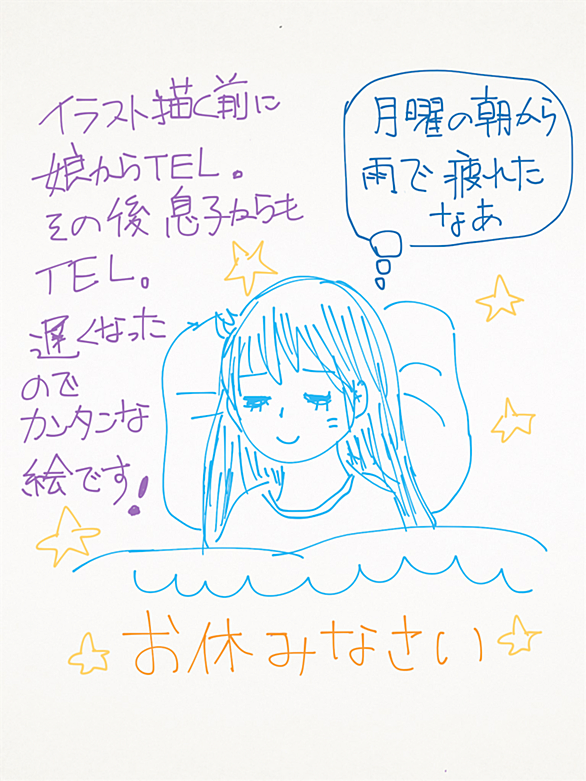 イラスト描く前に
娘からTEL。
その後息子からも
TEL。
遅くなった
ので
カンタンな
絵です!
月曜の朝から
雨で疲れた
なあ
お休みなさい